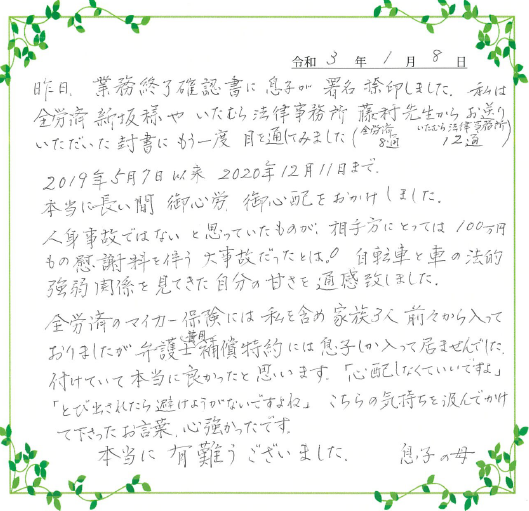 令和 3 年 1 月 8 日
昨日、業務終了確認書に息子が署名捺印しました。私は
全労済 新坂様や いたむら法律事務所 藤村先生からお送り
いただいた封書にもう一度 目を通してみました(全労済 8通 いたむら法律事務所 12通)
2019年5月7日以来 2020年12月11日まで、
本当に長い間 御心労、御心配をおかけしました。
人身事故ではないと思っていたものが、相手方にとっては 100万円
もの慰謝料を伴う大事故だったとは!自転車と車の法的
強弱関係を見てきた自分の甘さを通感致しました。
全労済のマイカー保険には私を含め家族3人前々から入って
おりましたが弁護士費用補償特約には息子しか入って居ませんでした。
付けていて本当に良かったと思います。「心配しなくていいですよ」
「とび出されたら避けようがないですよね」こちらの気持ちを汲んでかけ
て下さったお言葉、心強かったです。
本当に 有難うございました。 息子の母